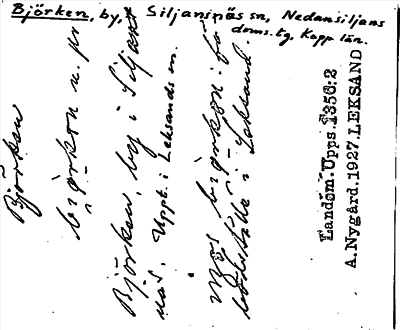 Björken, by, Siljansnäs sn, Nedansiljans
doms.tg, Kopp. län.
Björken
björkon n. pr
Björken, by i Siljans
näs. Uppt. i Leksands sn.
björkon: få
i Leksand.
Landsm.Upps.1356:2
A.Nygård.1927.LEKSAND